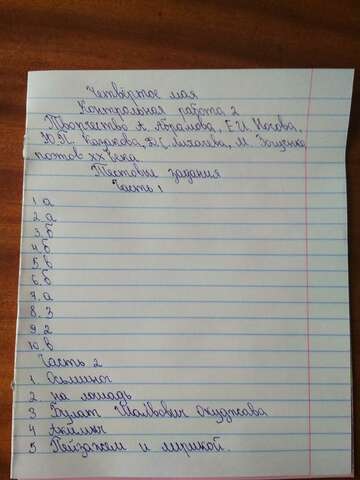 Четвёртое мая
Контрольная работа 2
Творчество А. Абрамова, Е.И. Носова,
Ю.П. Казакова, Д.С. Лихачева, М. Зощенко
поэтов XX века
Тестовые задания
Часть 1
1 а
2 а
3. б
4. б
5. в
6. б
7. а
8. 3
9 2
10. в
Часть 2
1 Осьминог
2 на лошадь
3 Булат Шалвович Окуджава
4
5 Пейзажем и лирикой.